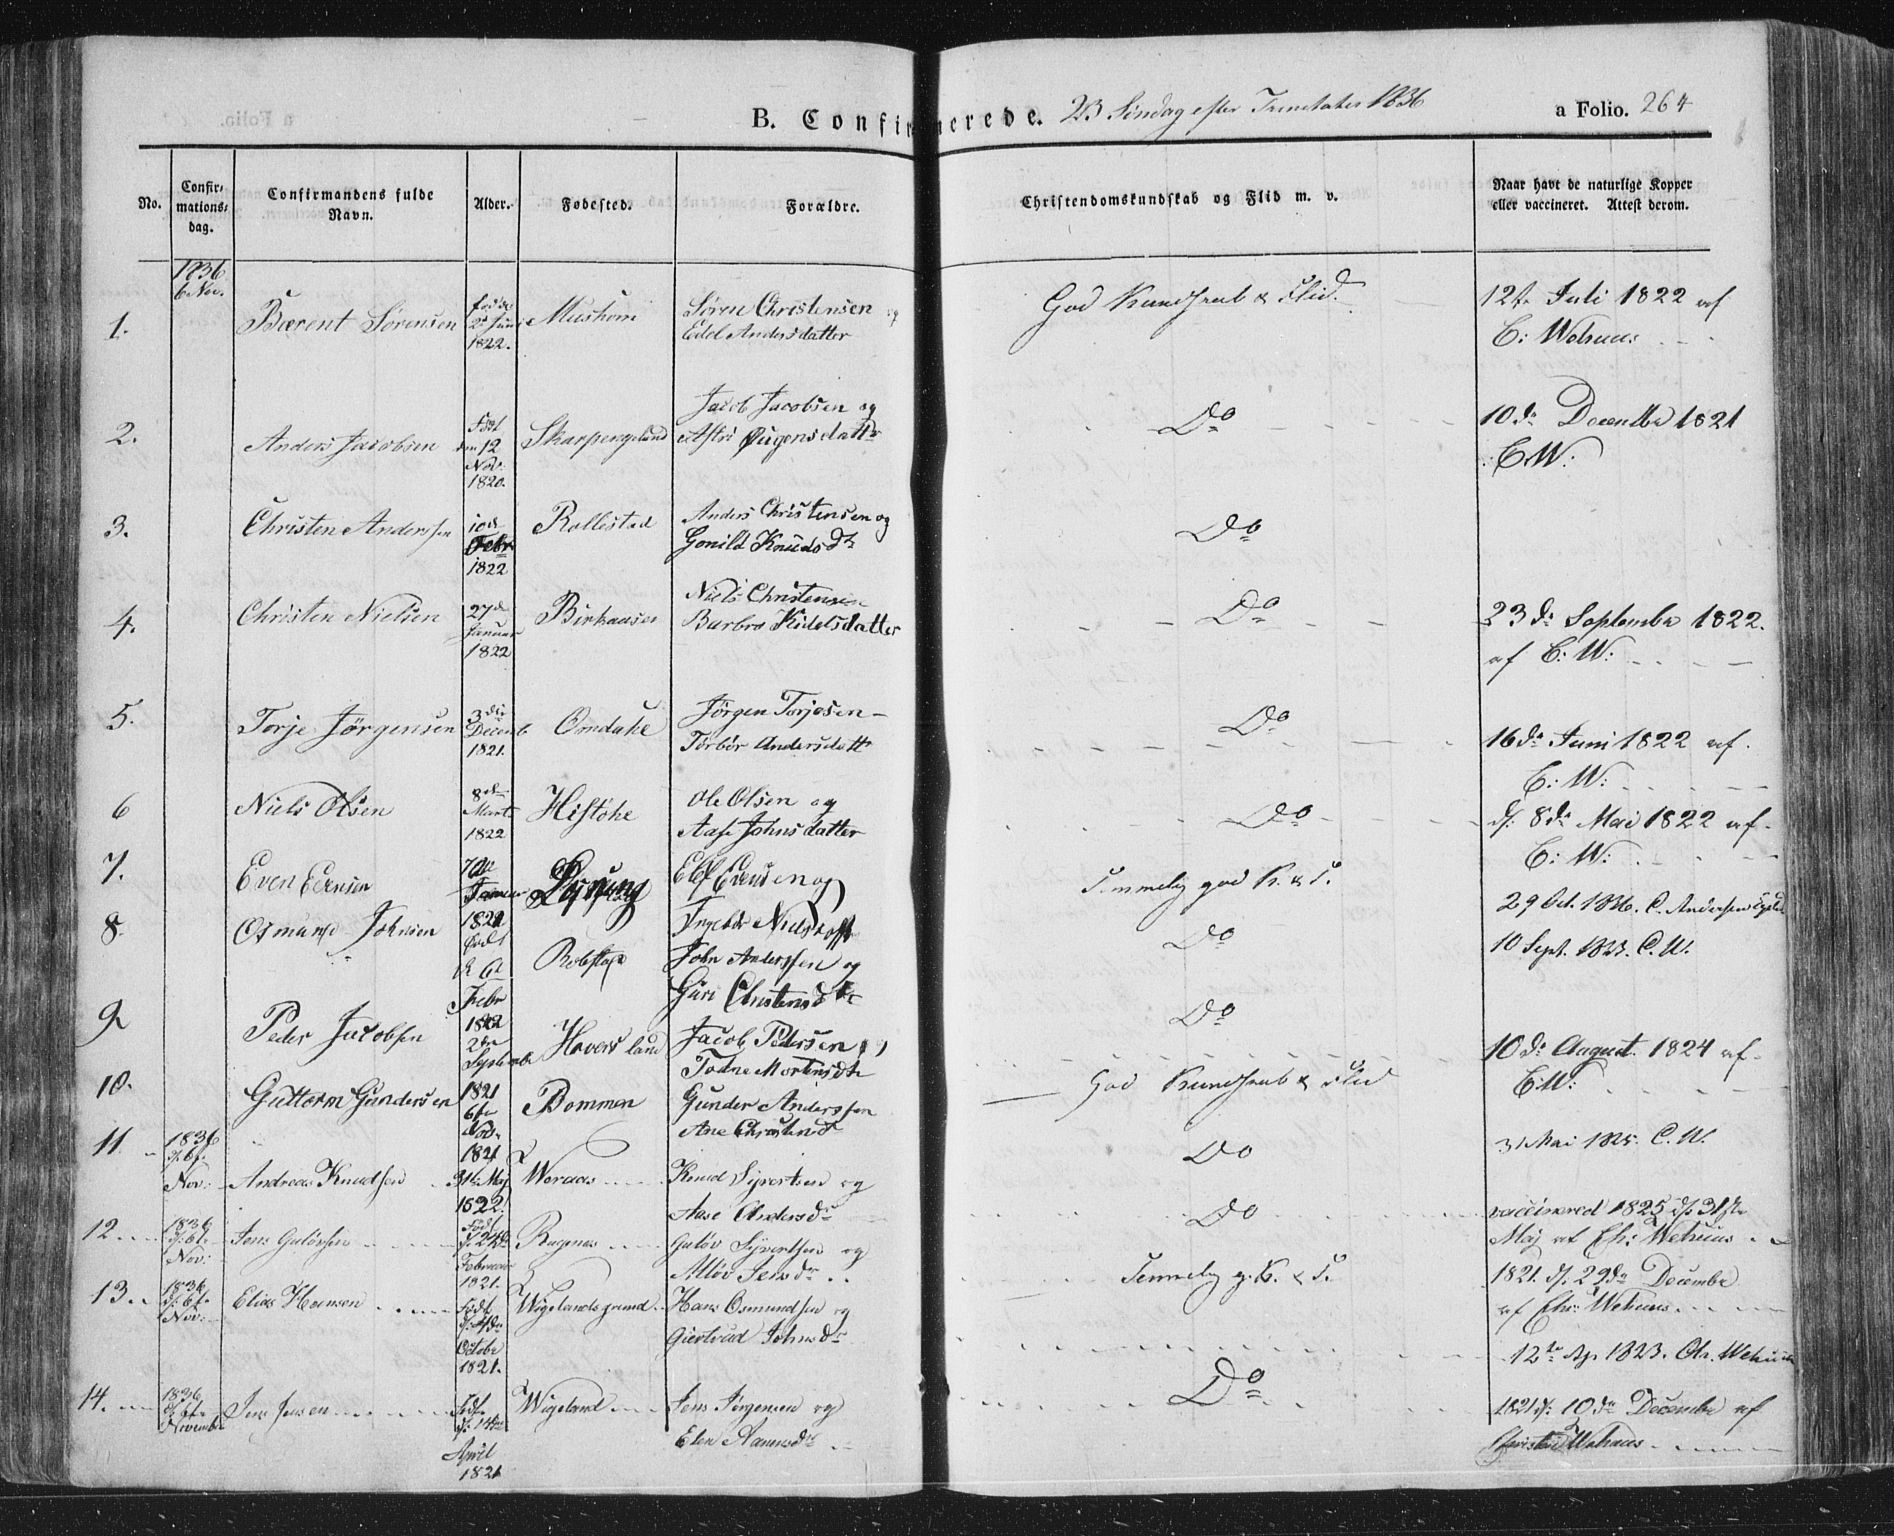 B. Confirmerede. 23 Søndag efter Trinitatis 1836 a Folio. 264
No. Confirmations-dag. Confirmandens fulde Navn. Alder. Fødested. Forældre. Christendomskundskab og Flid m. v. Naar havt de naturlige Kopper eller vaccineret. Attest derom.
1836
6 Nov.
1. Bærent Sørensen født 2d Juni 1822. Søren Christensen og Edel Andersdatter God Kundskab & Flid. 12te Juli 1822 af C: Wehuus
2. Anders Jacobsen Født den 12 Nov: 1820. Skarpengeland Jacob Jacobsen og Astri datt Do 10de Decembr 1821 C.W:
3. Christen Anderssen 10de Febr 1822 Rollestad Anders Christensen og Gonild Knudsdtr Do
4. Christen Nielsen 27de Januar 1822 Niels Christensen Barbro Kidelsdatter Do 23de Septembr 1822. af C: W:
5. Torje Jørgensen 3die Decemb 1821. Omdahl Jørgen Torjesen Torbor Andersdatt Do 16de Juni 1822 af C: W:
6 Niels Olsen 8de Marts 1822 Ole Olsen og Aase Johnsdatter Do d. 8de Mai 1822 af C: W:
7. Even Januar 1822 Elef Evensen og Ingebor Nielsdatt Temmelig god K. & F. 29 Oct. 1836. C. Andersen
8. Osmund Johnsen Født d. 6te Febr 1822 Robstad John Anderssen og Guri Christensdtr Do 10 Sept. 1823. C. W.
9 Peder Jacobsen 2den Septembr 1821 Haversland Jacob Pedersen og Todne Mortensdtr Do 10de August 1824 af C:W:
10. Guttorm Gundersen 6te Nov. 1821 Bommen Gunder Anderssen Ane Christensd God Kundskab & Flid 31 Mai 1825. C. W.
11. 1836 d. 6te Nov: Andreas Knudsen 31te Maj 1822. Weraas Knud Syvertsen og Aase Andersdr Do vaccinered 1825 d. 31te Maj af Chr: Wehuus
12. 1836 d: 6te Nov: Jens Guløvsen Født d. 24de Februar 1821. Ragnas Guløv Syvertsen og Alløv Jensdr Do 1821. d. 29de Decembr af Chr: Wehuus
13. 1836 d. 6te Nov: Elias Hansen Født d. 4de Octobr 1821. Wigelandsgrund Hans Osmundsen og Giertrud Johnsdr Temmelig g. K. & F. 12te Ap 1823. Chr. Wehuus
14. 1836 d. 6te Novembr Jens Jensen Født d. 14de April 1821 Wigeland Jens Jørgensen og Elen Do 1821 d: 10de Decembr af Christen Wehuus